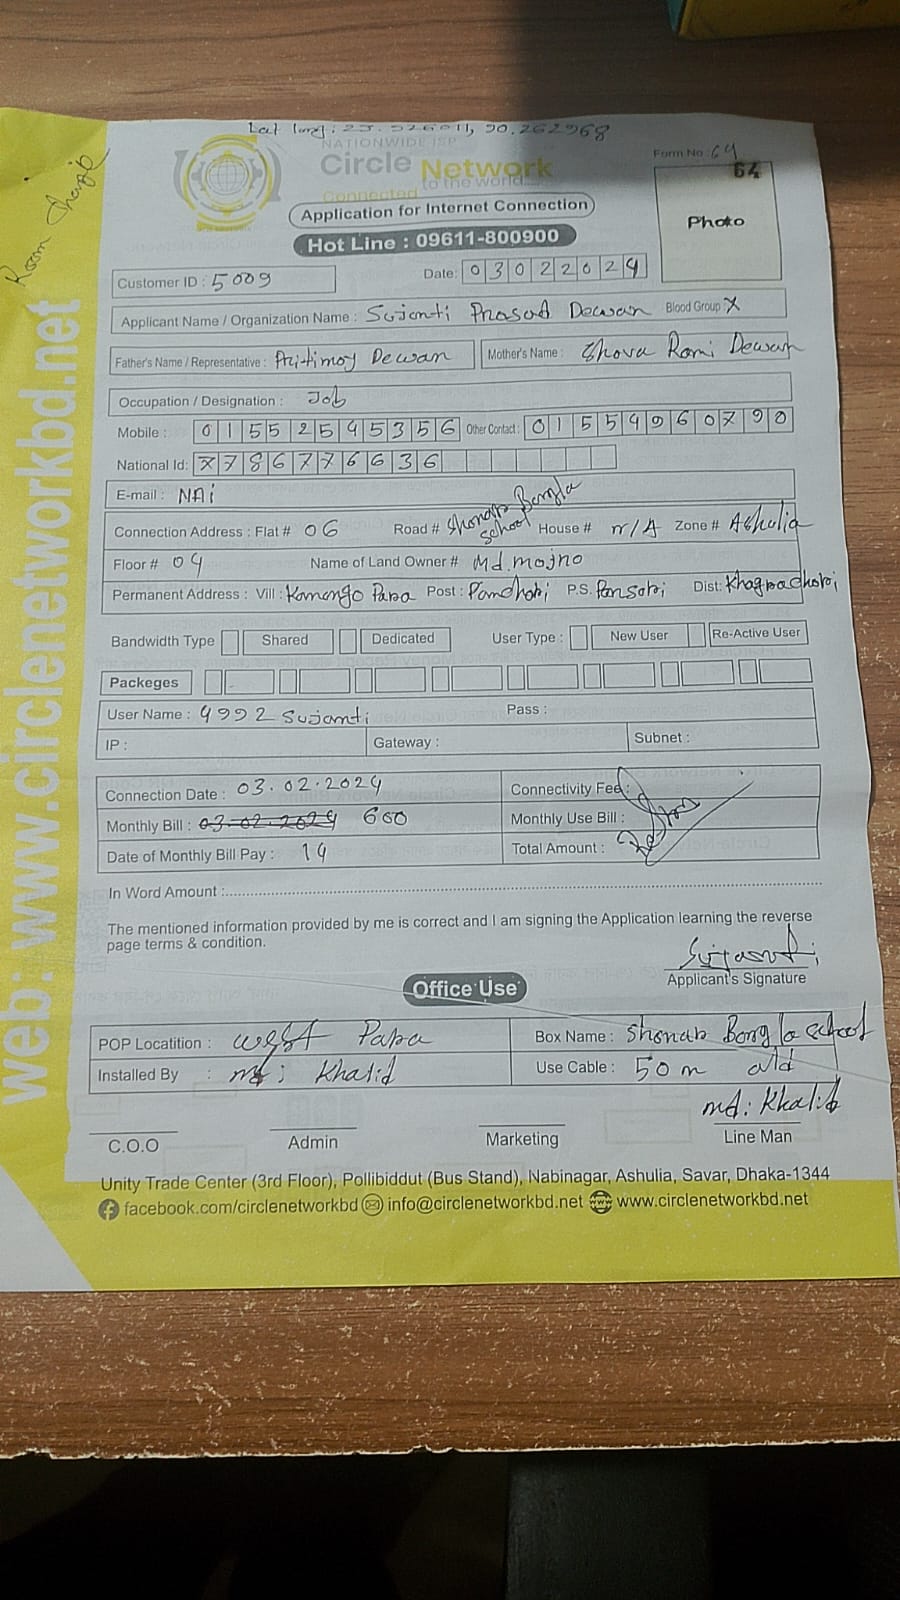 Lat long: 23.926011, 90.262968
NATIONWIDE ISP
Circle Network
Connected to the world
Form No: 64
64
Photo
Application for Internet Connection
Hot Line : 09611-800900
Customer ID : 5009
Date: 03022024
Applicant Name / Organization Name : Sujanti Prasad Dewan Blood Group X
Father's Name / Representative : Pritimoy Dewan Mother's Name : Shova Rani Dewan
Occupation / Designation : Job
Mobile : 01552545356 Other Contact : 01554960790
National Id: 7786776636
E-mail : NAi
Connection Address : Flat # 06 Road # Shonar Bangla School House # n/A Zone # Ashulia
Floor # 04 Name of Land Owner # Md. mojno
Permanent Address : Vill : Kamongo Para Post : Panchori P.S. Pansori Dist: Khagrachhori
Bandwidth Type Shared Dedicated User Type : New User Re-Active User
Packeges
User Name : 4992 Sujanti Pass :
IP : Gateway : Subnet :
Connection Date : 03.02.2024 Connectivity Fee :
Monthly Bill : 03-02-2024 600 Monthly Use Bill :
Date of Monthly Bill Pay : 14 Total Amount :
In Word Amount :
The mentioned information provided by me is correct and I am signing the Application learning the reverse
page terms & condition.
Sujanti
Applicant's Signature
Office Use
POP Locatition : west Para Box Name : Shonar Bongla School
Installed By : md: Khalid Use Cable : 50 m old
md: Khalid
C.O.O Admin Marketing Line Man
Unity Trade Center (3rd Floor), Pollibiddut (Bus Stand), Nabinagar, Ashulia, Savar, Dhaka-1344
facebook.com/circlenetworkbd info@circlenetworkbd.net www.circlenetworkbd.net
web: www.circlenetworkbd.net